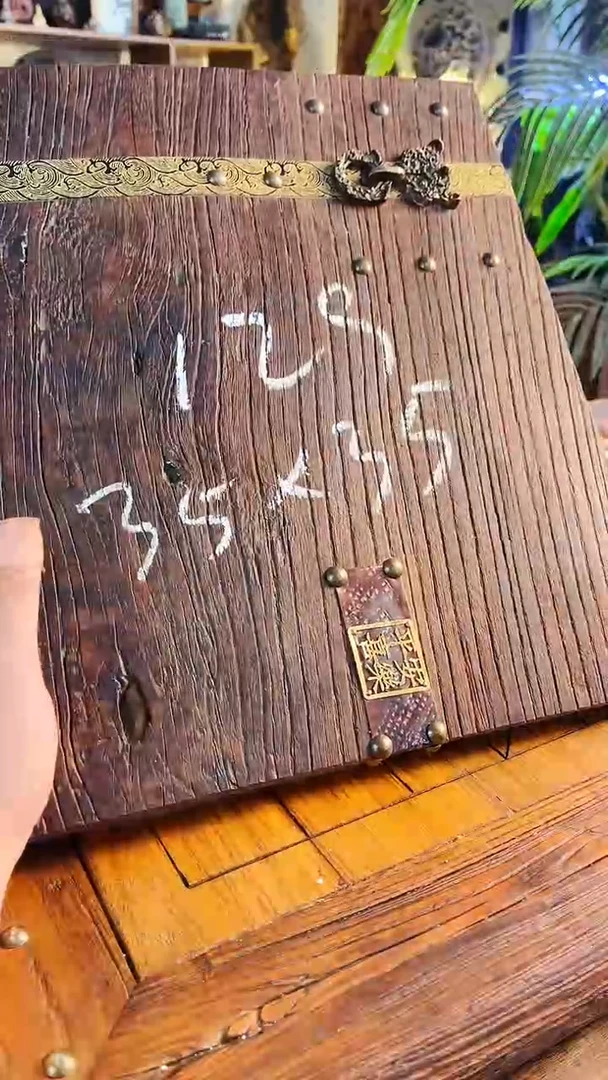 128
35×35
平安
喜樂